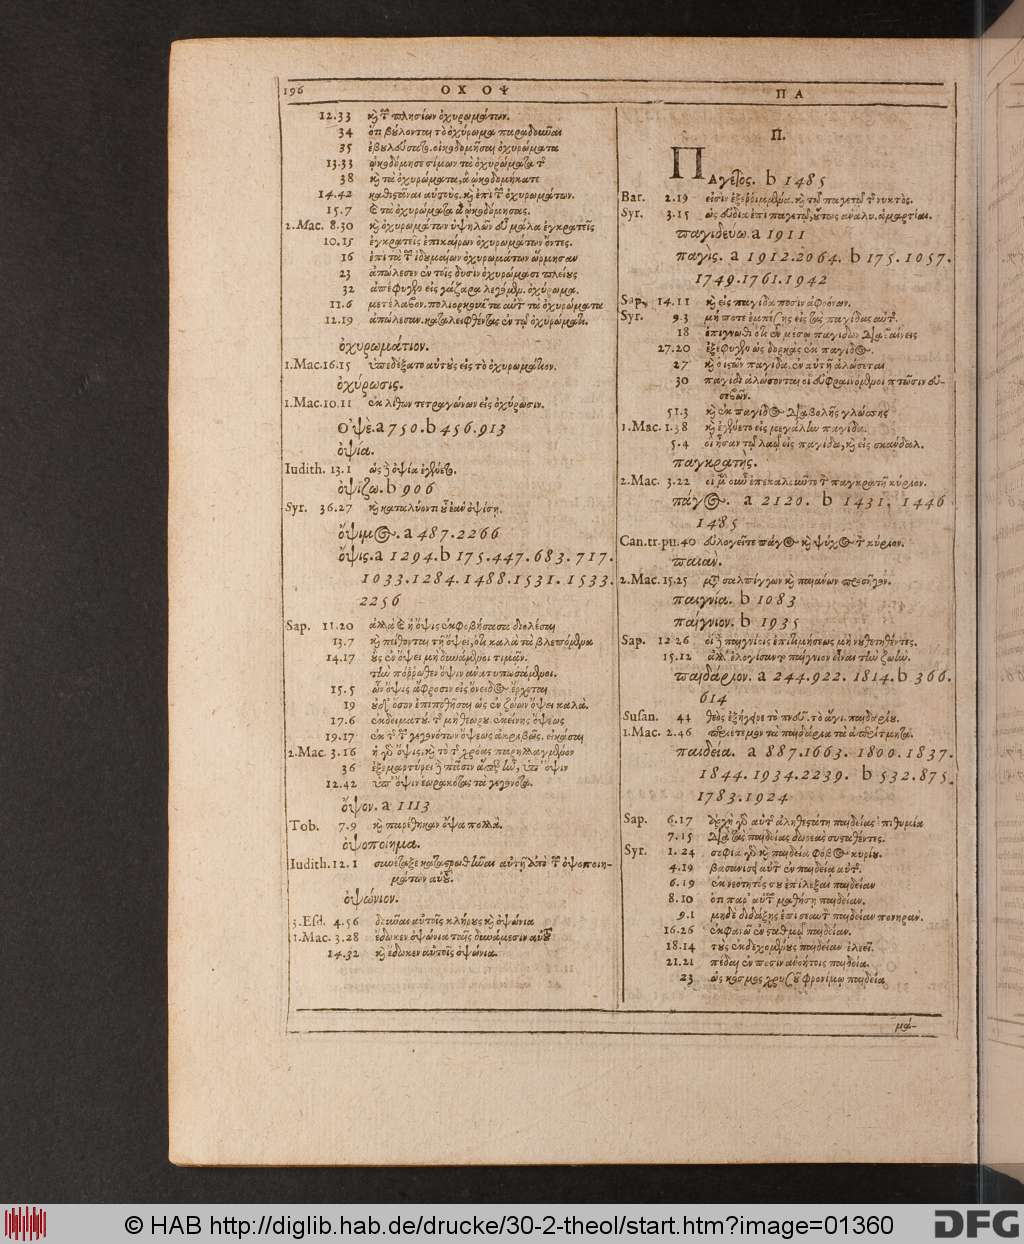 196 ΟΧ ΟΨ ΠΑ
12.33 καὶ τῶν πλησίων ὀχυρωμάτων.
34 ὅτι βούλονται τὸ ὀχύρωμα παραδοῦναι
35 ἐβουλεύσατο. οἰκοδομῆσαι ὀχυρώματα
13.33 ᾠκοδόμησε σίμων τὰ ὀχυρώματα τῆς
38 καὶ τὰ ὀχυρώματα, ἃ ᾠκοδομήκατε
14.42 καθιστάναι αὐτοὺς. καὶ ἐπὶ τῶν ὀχυρωμάτων.
15.7 καὶ τὰ ὀχυρώματα ἃ ᾠκοδόμησας.
2.Mac. 8.30 καὶ ὀχυρωμάτων ὑψηλῶν εὖ μάλα ἐγκρατεῖς
10.15 ἐγκρατεῖς ἐπικαίρων ὀχυρωμάτων ὄντες.
16 ἐπὶ τὰ τῶν ἰδουμαίων ὀχυρωμάτων ὥρμησαν
23 ἀπώλεσεν ἐν τοῖς δυσὶν ὀχυρώμασι πλείους
32 εἰς γάζαρα λεγόμενον. ὀχύρωμα.
11.6 μετέλαβον. πολιορκοῦντα αὐτὸν τὰ ὀχυρώματα
12.19 ἀπώλεσαν. καταλειφθέντας ἐν τῷ ὀχυρώματι.
ὀχυρωμάτιον.
1.Mac.16.15 ὑπεδέξατο αὐτοὺς εἰς τὸ ὀχυρωμάτιον.
ὀχύρωσις.
1.Mac.10.11 ἐκ λίθων τετραγώνων εἰς ὀχύρωσιν.
ὀψέ. a 750. b 456. 913
ὀψία.
Iudith. 13.1 ὡς δὲ ὀψία ἐγένετο.
ὀψίζω. b 906
Syr. 36.27 καὶ καταλύοντι οὗ ἐὰν ὀψίσῃ.
ὄψιμος. a 487. 2266
ὄψις. a 1294. b 175. 447. 683. 717.
1033. 1284. 1488. 1531. 1533.
2256
Sap. 11.20 ἀλλὰ καὶ ἡ ὄψις ἐκφοβήσασα διολέσαι
13.7 καὶ πείθονται τῇ ὄψει, ὅτι καλὰ τὰ βλεπόμενα
14.17 οὓς ἐν ὄψει μὴ δυνάμενοι τιμᾶν.
τὴν πόρρωθεν ὄψιν ἀνατυπωσάμενοι.
15.5 ὧν ὄψις ἄφροσιν εἰς ὄνειδος ἔρχεται
19 οὐδ' ὅσον ἐπιποθῆσαι ὡς ἐν ζώων ὄψει καλά.
17.6 ἐκδειματού. τῆς μὴ θεωρου ἐκείνης ὄψεως
19.17 ἐκ τῆς τῶν γεγονότων ὄψεως ἀκριβῶς. εἰκάσαι
2.Mac. 3.16 ἡ γὰρ ὄψις. καὶ τὸ τῆς χρόας παρηλλαγμένον
36 ἐξεμαρτύρει δὲ πᾶσιν ἅπερ ἦν, ὑπ' ὄψιν
12.42 ὑπ' ὄψιν ἑωρακότας τὰ γεγονότα.
ὄψον. a 1113
Tob. 7.9 καὶ παρέθηκαν ὄψα πολλά.
ὀψοποίημα.
Iudith. 12.1 συνέταξε καταστρωθῆναι αὐτῇ ἀπὸ τῶν ὀψοποιη-
μάτων αὐτοῦ.
ὀψώνιον.
3.Esd. 4.56 δοῦναι αὐτοῖς κλήρους καὶ ὀψώνια
1.Mac. 3.28 ἔδωκεν ὀψώνια ταῖς δυνάμεσιν αὐτοῦ
14.32 καὶ ἔδωκεν αὐτοῖς ὀψώνια.
Π.
ΠΑγετος. b 1485
Bar. 2.19 εἰσὶν ἐξερριμμένα. καὶ τῷ παγετῷ τῆς νυκτός.
Syr. 3.15 ὡς εὐδία ἐπὶ παγετῷ, οὕτως ἀναλυ. ἁμαρτίαι.
παγιδεύω. a 1911
παγίς. a 1912. 2064. b 175. 1057.
1749. 1761. 1942
Sap. 14.11 καὶ εἰς παγίδα ποσὶν ἀφρόνων.
Syr. 9.3 μή ποτε ἐμπέσῃς εἰς τὰς παγίδας αὐτῆς.
18 ἐπίγνωθι ὅτι ἐν μέσῳ παγίδων διαβαίνεις
27.20 ἐξέφυγεν ὡς δορκὰς ἐκ παγίδος.
27 καὶ ὁ ἱστῶν παγίδα. ἐν αὐτῇ ἁλώσεται
30 παγίδι ἁλώσονται οἱ εὐφραινόμενοι πτώσιν εὐ-
σεβῶν.
51.3 καὶ ἐκ παγίδος διαβολῆς γλώσσης
1.Mac. 1.38 καὶ ἐγένετο εἰς μεγάλην παγίδα.
5.4 οἳ ἦσαν τῷ λαῷ εἰς παγίδα, καὶ εἰς σκανδαλ.
παγκρατής.
2.Mac. 3.22 οἱ μὲν οὖν ἐπεκαλοῦντο τὸν παγκρατῆ κύριον.
πάγος. a 2120. b 1431. 1446
1485
Can.tr.pu.40 εὐλογεῖτε πάγος καὶ ψύχος τὸν κύριον.
παιάν.
2.Mac. 15.25 μετὰ σαλπίγγων καὶ παιάνων προσῆγον.
παιγνία. b 1083
παίγνιον. b 1935
Sap. 12.26 οἱ δὲ παιγνίοις ἐπιτιμήσεως μὴ νουθετηθέντες.
15.12 ἀλλ' ἐλογίσαντο παίγνιον εἶναι τὴν ζωὴν.
παιδάριον. a 244. 922. 1814. b 366.
614
Susan. 44 θεὸς ἐξήγειρε τὸ πνεῦ. τὸ ἅγι. παιδαρίου.
1.Mac. 2.46 περιέτεμον τὰ παιδάρια τὰ ἀπερίτμητα.
παιδεία. a 887. 1663. 1800. 1837.
1844. 1934. 2239. b 532. 875.
1783. 1924
Sap. 6.17 ἀρχὴ γὰρ αὐτῆς ἀληθεστάτη παιδείας ἐπιθυμία
7.15 διὰ τὰς παιδείας δωρεὰς συσταθέντες.
Syr. 1.24 σοφία γὰρ καὶ παιδεία φόβος κυρίου.
4.19 βασανίσῃ αὐτὸν ἐν παιδείᾳ αὐτῆς.
6.19 ἐκ νεότητός σου ἐπίλεξαι παιδείαν
8.10 ὅτι παρ' αὐτῶν μαθήσῃ παιδείαν.
9.1 μηδὲ διδάξῃς ἐπὶ σεαυτὸν παιδείαν πονηράν.
16.26 ἐκφανῶ ἐν σταθμῷ παιδείαν.
18.14 τοὺς ἐκδεχομένους παιδείαν ἐλεεῖ.
21.21 πέδαι ἐν ποσὶν ἀνοήτοις παιδεία.
23 ὡς κόσμος χρυσοῦς φρονίμῳ παιδεία
μά-
© HAB http://diglib.hab.de/drucke/30-2-theol/start.htm?image=01360 DFG